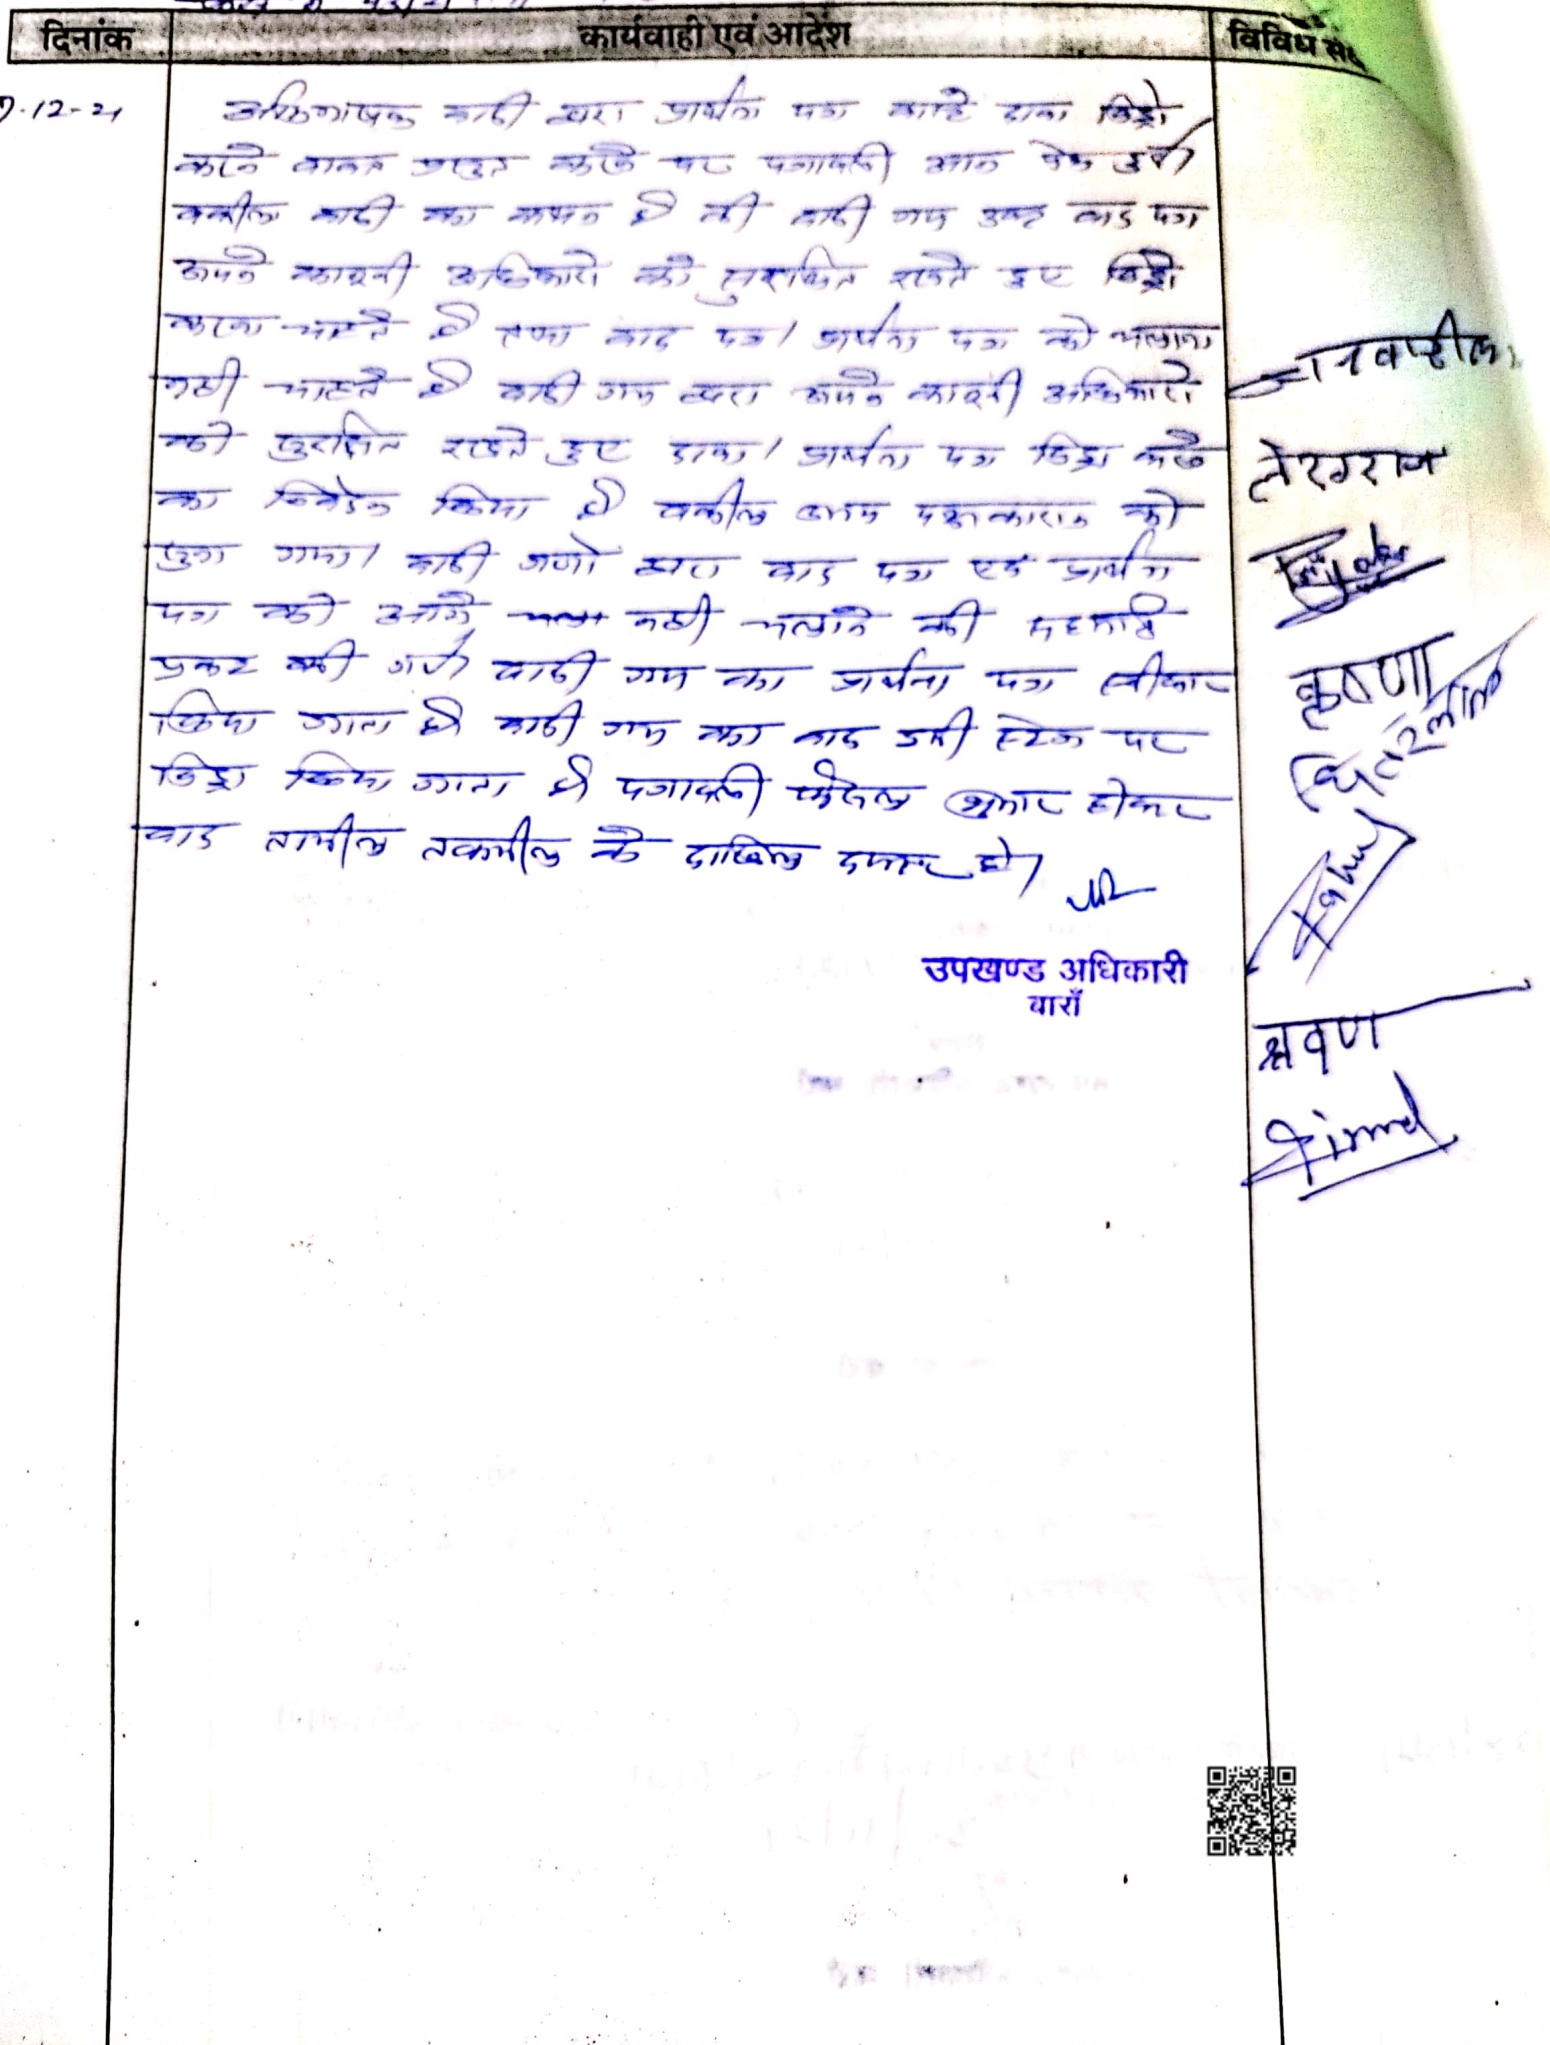 दिनांक कार्यवाही एवं आदेश विविध
12-21 अभिभाषक वादी द्वारा प्रार्थना पत्र वास्ते दावा विड्रो
करने बाबत प्रस्तुत करने पर पत्रावली आज पेश हुई।
वकील वादी का कथन है की वादी गण उक्त वाद पत्र
अपने कानूनी अधिकारो को सुरक्षित रखते हुए विड्रो
करना चाहते है तथा वाद पत्र/ प्रार्थना पत्र को चलाना
नही चाहते है वादी गण द्वारा अपने कानूनी अधिकारो
को सुरक्षित रखते हुए दावा/ प्रार्थना पत्र विड्रा करने
का निवेदन किया है वकील उभय पक्षकारान को
सुना गया। वादी गणो द्वारा वाद पत्र एवं प्रार्थना
पत्र को आगे नही चलाने की सहमति
प्रकट की गई। वादी गण का प्रार्थना पत्र स्वीकार
किया जाता है वादी गण का वाद इसी स्टेज पर
विड्रा किया जाता है पत्रावली फैसल शुमार होकर
बाद तामील तकमील के दाखिल दफ्तर हो।
उपखण्ड अधिकारी
बाराँ
लेखराज
कृष्णा
श्रवण